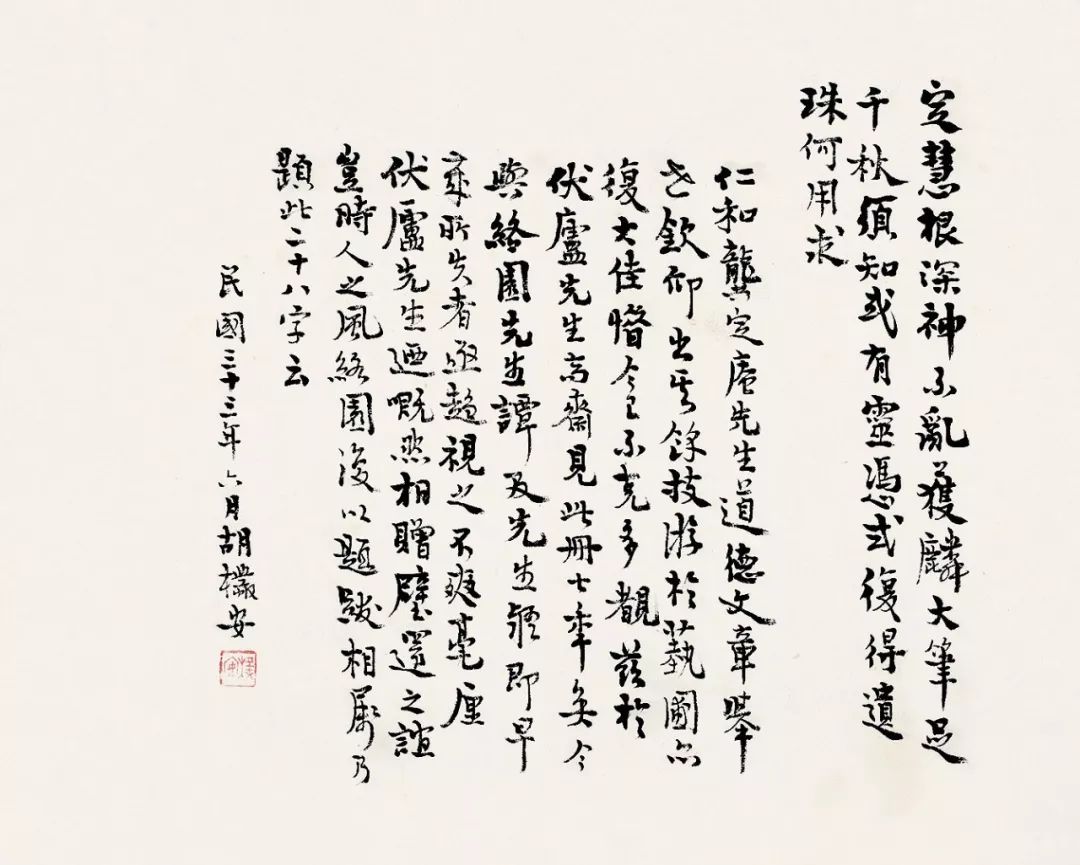 定慧根深神不亂獲麟大筆足
千秋須知或有靈憑式復得遺
珠何用求
仁和龔定庵先生道德文章舉
世欽仰出其餘技游於藝國亦
復大佳惜今已不克多覩茲於
伏廬先生高齋見此冊七年矣今
與絡園先生譚及先生疑即早
歲所失者亟趨視之不爽毫厘
伏廬先生迺慨然相贈璧還之誼
豈時人之風絡園復以題跋相屬乃
題此二十八字云
民國三十三年六月胡樸安
樸安